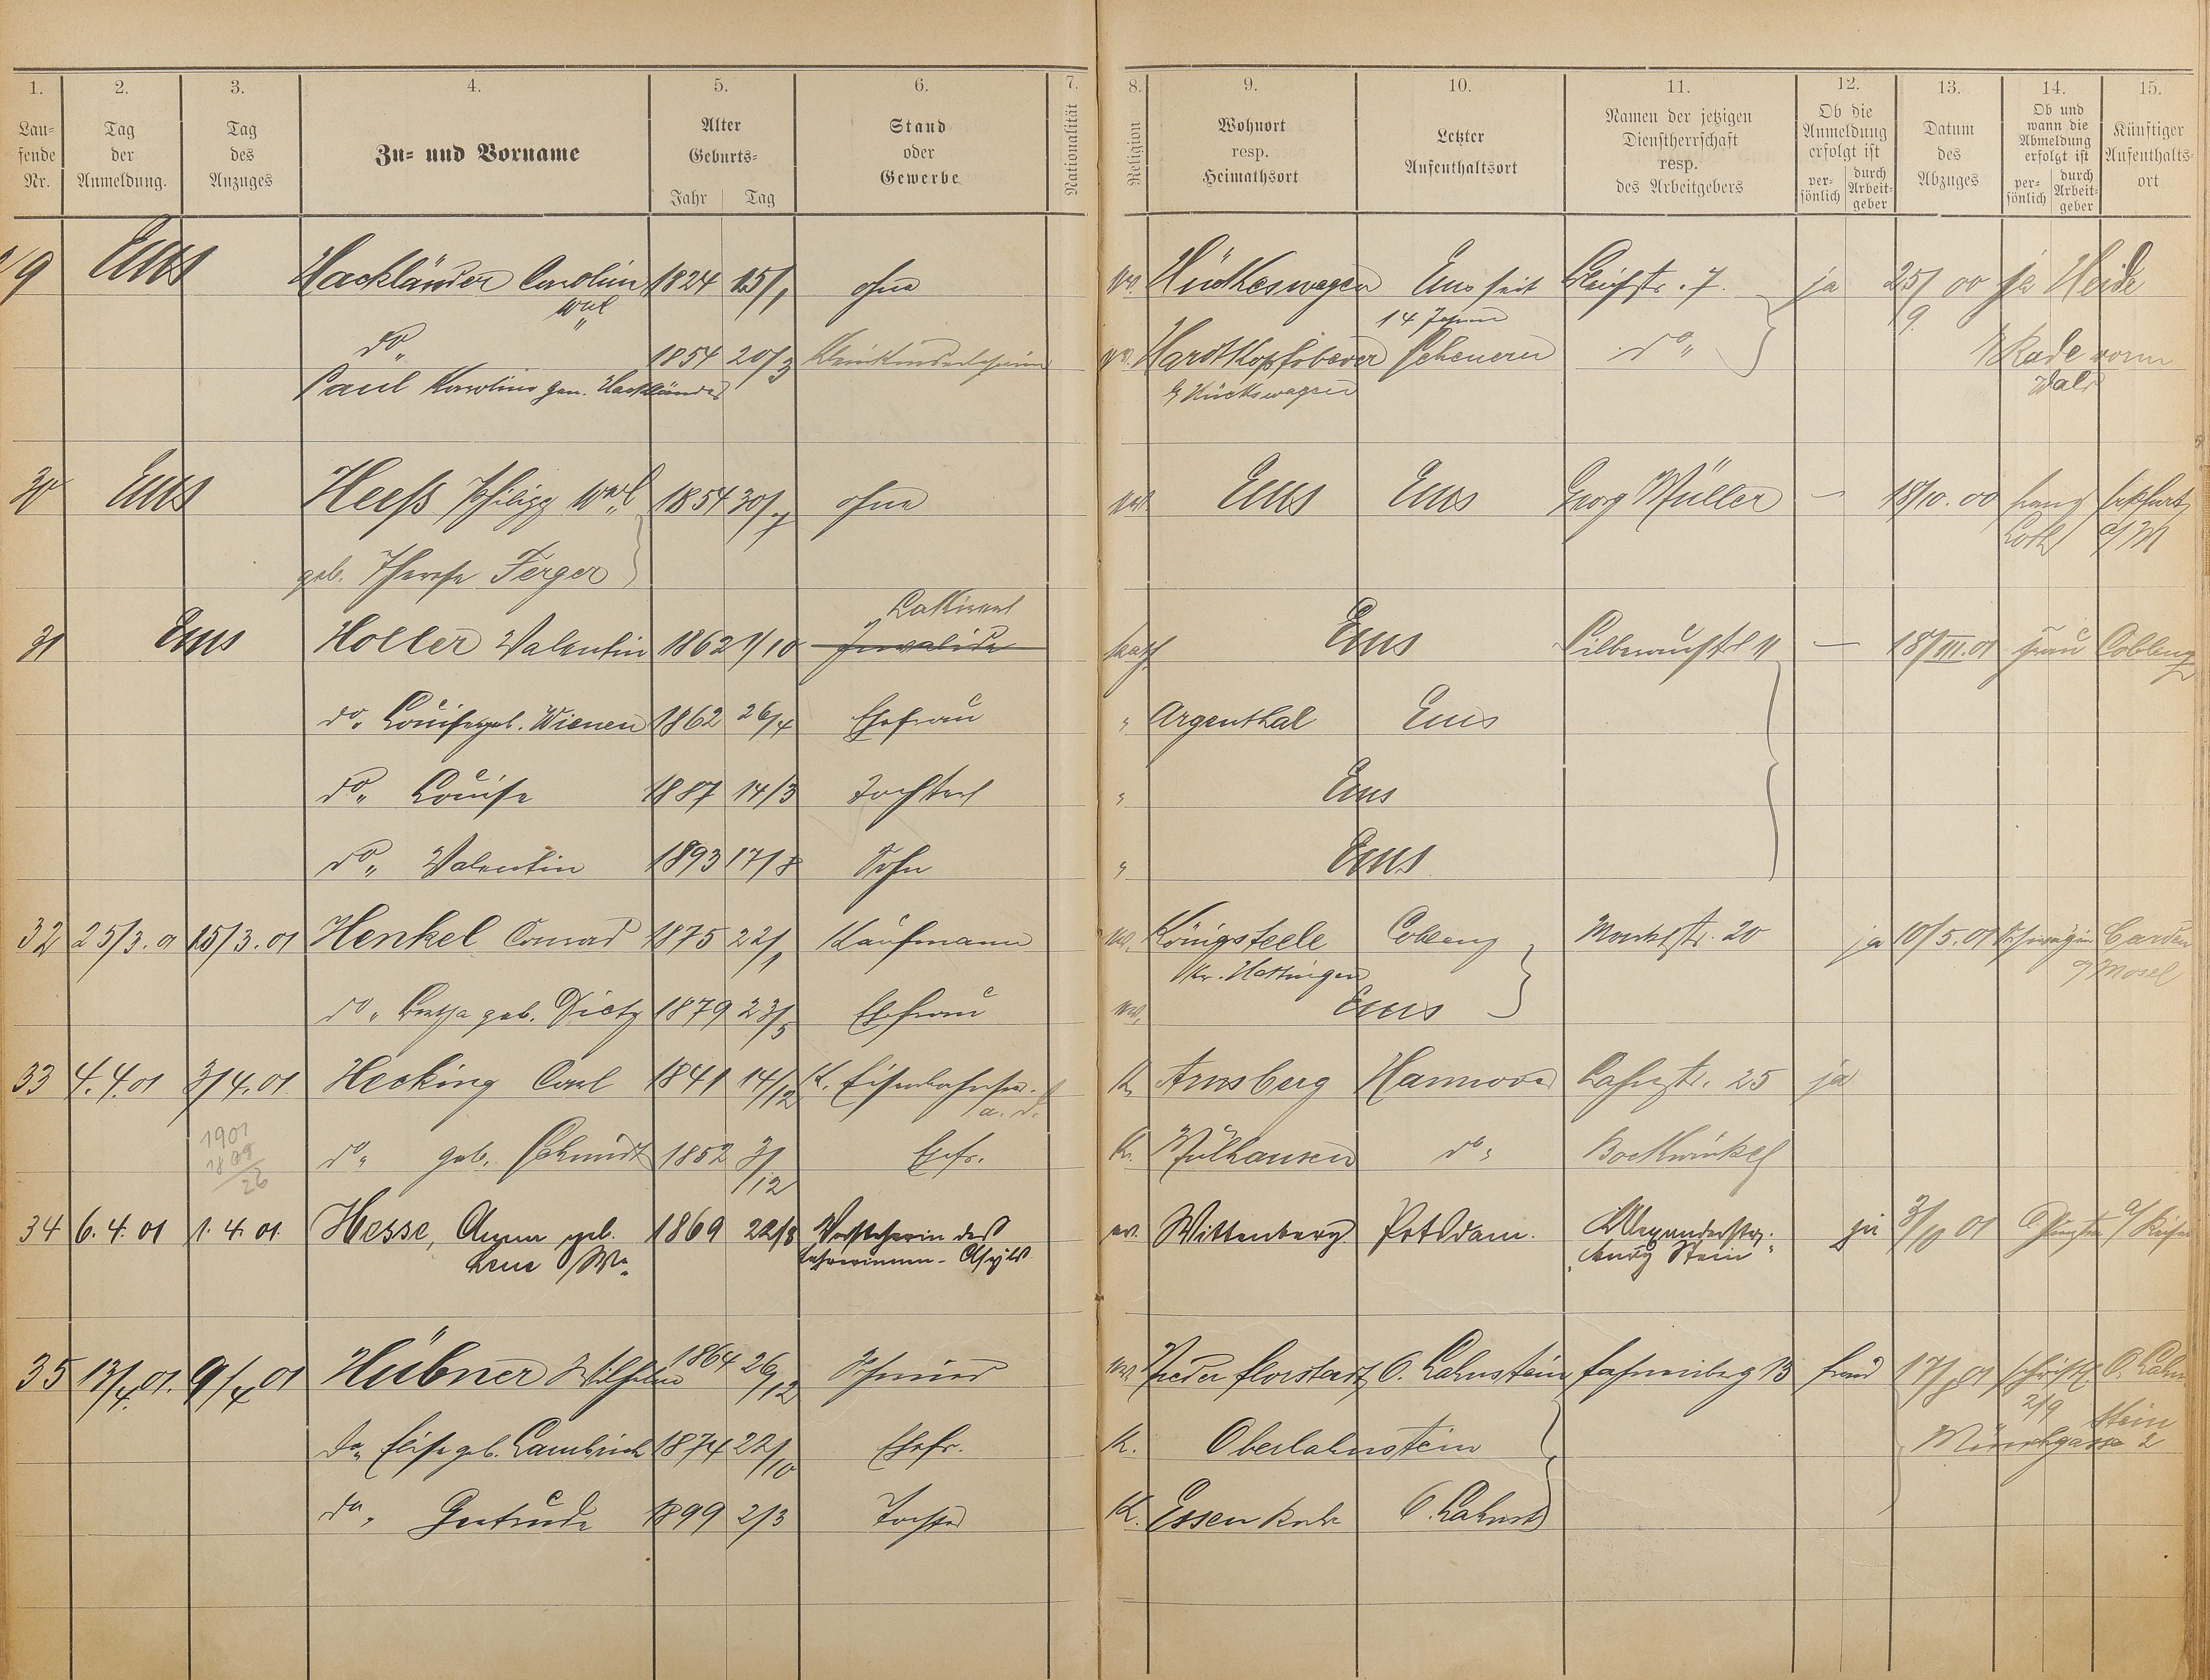 1. 2. 3. 4. 5. 6. 7. 8. 9. 10. 11. 12. 13. 14. 15.
Lau-
fende
Nr.
Tag
der
Anmeldung.
Tag
des
Anzuges
Zu- und Vorname
Alter
Geburts-
Jahr Tag
Stand
oder
Gewerbe
Nationalität
Religion
Wohnort
resp.
Heimathsort
Letzter
Aufenthaltsort
Namen der jetzigen
Dienstherrschaft
resp.
des Arbeitgebers
Ob die
Anmeldung
erfolgt ist
per-
sönlich
durch
Arbeit-
geber
Datum
des
Abzuges
Ob und
wann die
Abmeldung
erfolgt ist
per-
sönlich
durch
Arbeit-
geber
Künftiger
Aufenthalts-
ort
29 Ems Hackländer Carolin 1824 15/1 ohne ev. Hückeswagen Ems seit 7 ja 25/9 00 ja Heide
Wwe 14 Jahren
do 1854 20/3 Kleinkinderlehrerin ev. Scheuern do Rade vorm
Paul Karoline gen. Hackländer Hückeswagen Wald
30 Ems Heeß Philipp Wwe 1854 30/7 ohne Ems Ems Georg Müller — 18/10. 00 a/M
geb. Therese Ferger
Lakirer
31 Ems Holler Valentin 1862 1/10 Invalide kath Ems Silberaustr. 11 — 18/III. 01 Frau Coblenz
do Louise geb. Wienen 1862 26/4 Ehefrau " Argenthal Ems
do Louise 1887 14/3 Tochter " Ems
do Valentin 1893 17/8 Sohn " Ems
32 25/3. 01 15/3. 01 Henkel Conrad 1875 22/1 Kaufmann ev. Königsteele Coblenz Marktstr. 20 ja 10/5. 01 Carden
Kr. Hattingen a/Mosel
do geb. Dietz 1879 23/5 Ehefrau ev. Ems
33 4. 4. 01 3/4. 01 Hecking Carl 1841 14/12 K. a. D. K. Arnsberg Hannover Lahnstr. 25 ja
1901
26
do geb. Schmidt 1852 3/12 Ehefr. K. Mülhausen do Bockwinkel
34 6. 4. 01 1. 4. 01. Hesse, Anna geb. 1869 22/8 Vorsteherin des ev. Wittenberg. Potsdam. Alexanderstr. ja 3/10 01
Wwe Lehrerinnen-Asyls Stein"
35 13/4. 01. 9/4 01 Hübner Wilhelm 1864 26/12 ev. Nieder florstadt O. Lahnstein 13 Frau 17/8 01 schriftl. O. Lahn-
2/9 stein
do Elise geb. Lambrich 1874 22/10 Ehefr. K. Oberlahnstein 2
do Gertrude 1899 2/3 Tochter K. Essen Ruhr O. Lahnst